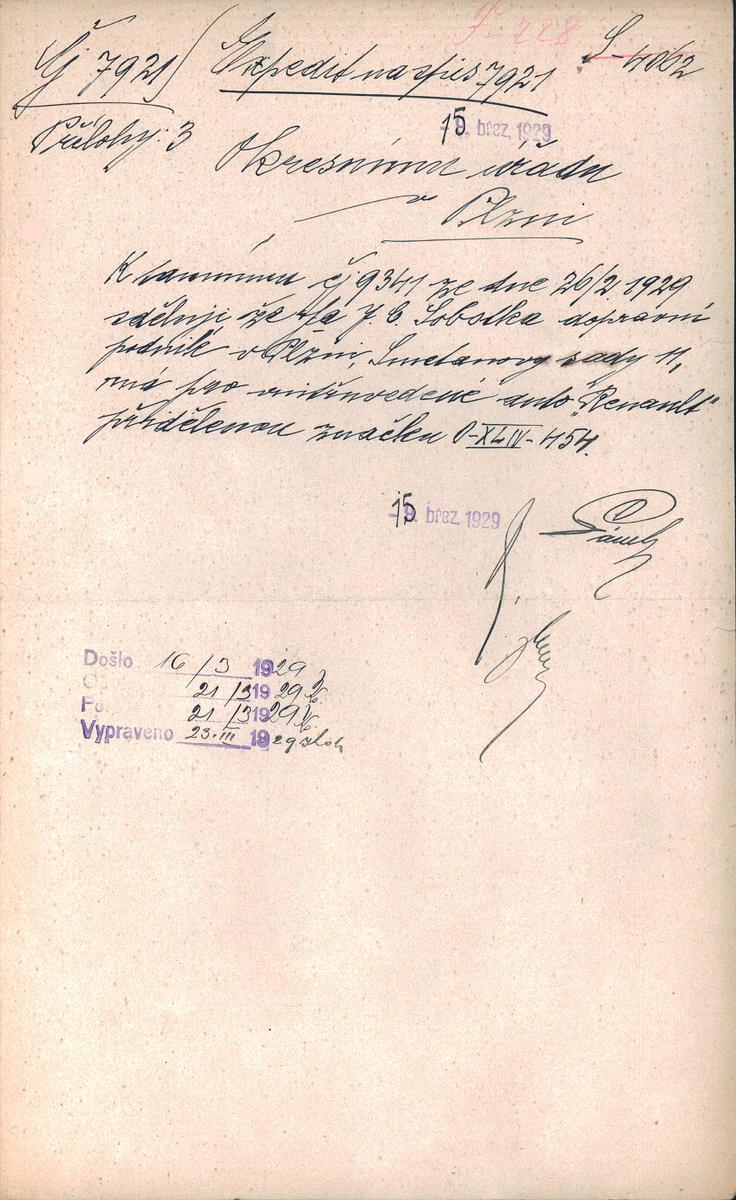 F-728
Čj 7921 Expedit na spis 7921 S 4062
Přílohy: 3
15. břez. 1929
Okresnímu úřadu
v Plzni
K tamnímu čj 9341 ze dne 26/2. 1929
sděluji že fa J. C. Sobotka dopravní
podnik v Plzni, Smetanovy sady 11,
má pro auto „Renault“
přidělenou značku O-XLIV-454.
15. břez. 1929
Došlo 16/3 1929
21/3 1929
21/3 1929
Vypraveno 23.III 1929